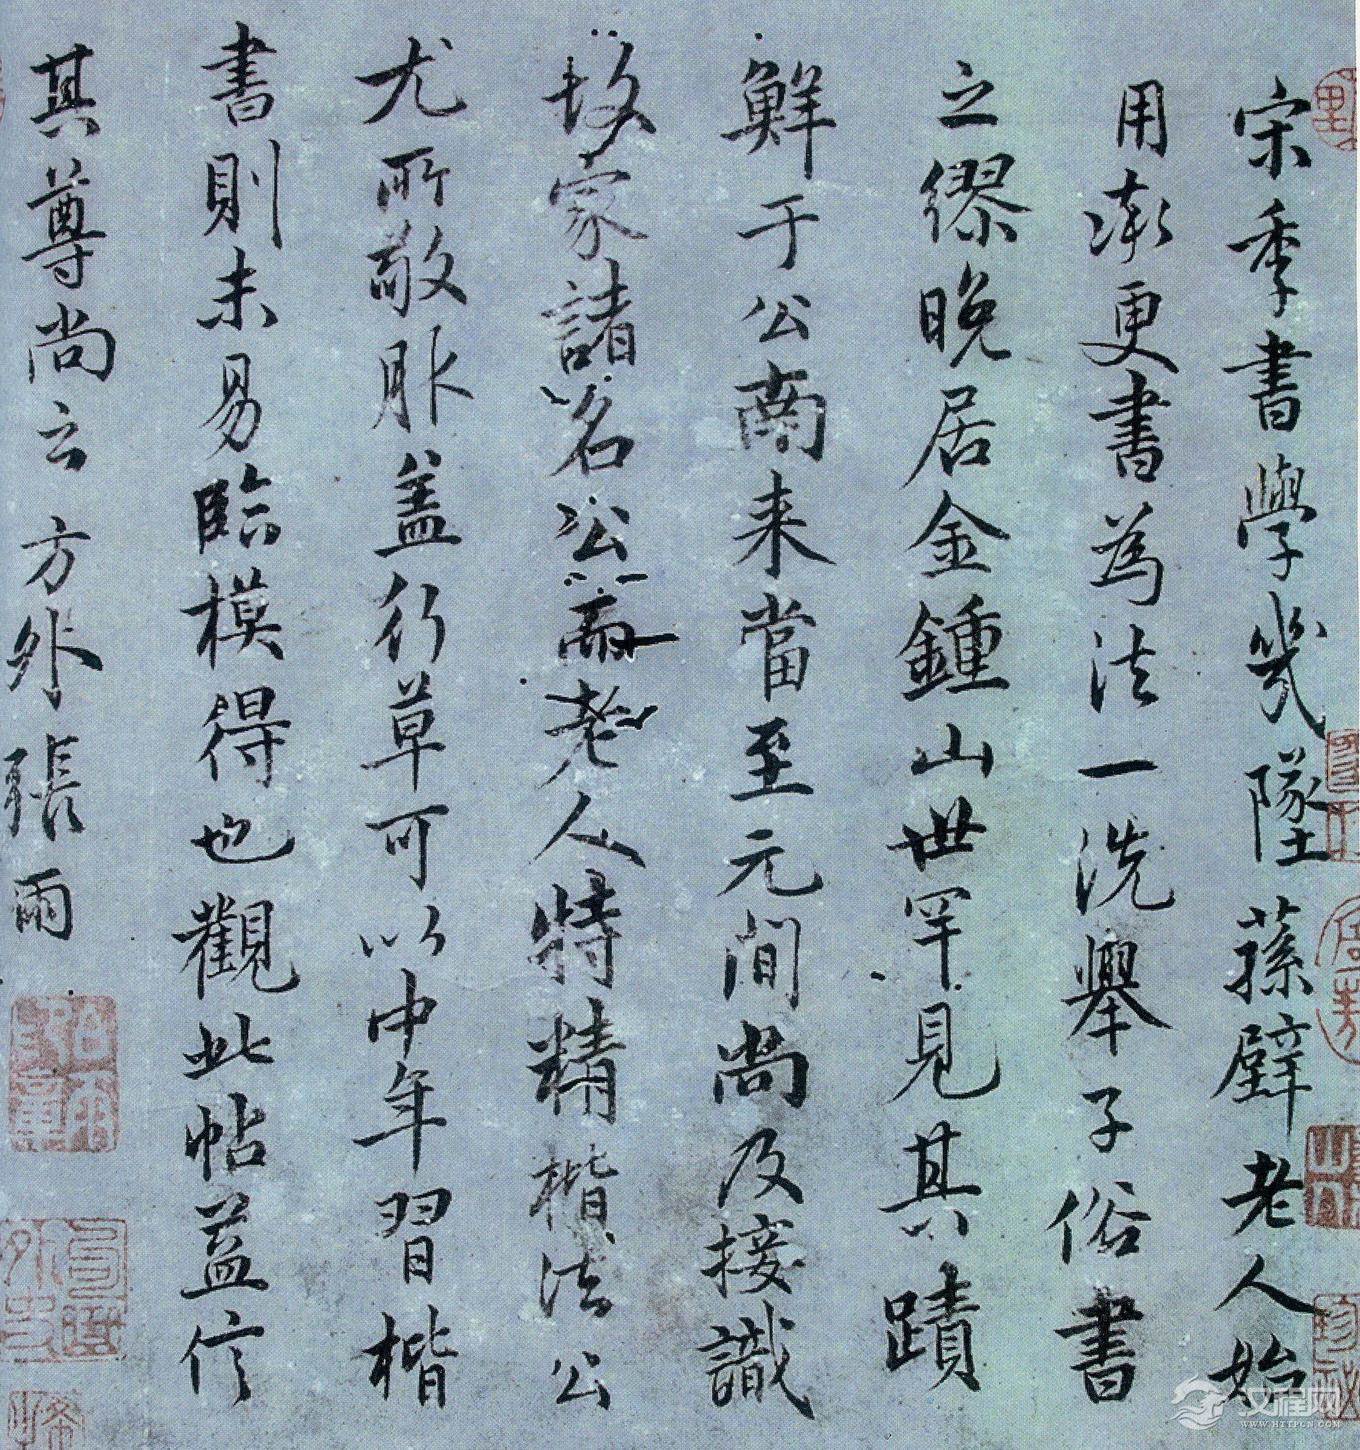 宋季書學幾墜蓀壁老人始
用漸更書為法一洗舉子俗書
之繆晚居金鍾山世罕見其蹟
鮮于公南来當至元間尚及接識
故家諸名公而老人特精楷法公
尤所敬服盖行草可以中年習楷
書則未易臨模得也觀此帖益信
其尊尚云方外張雨
汉程网
WWW.HTTPCN.COM